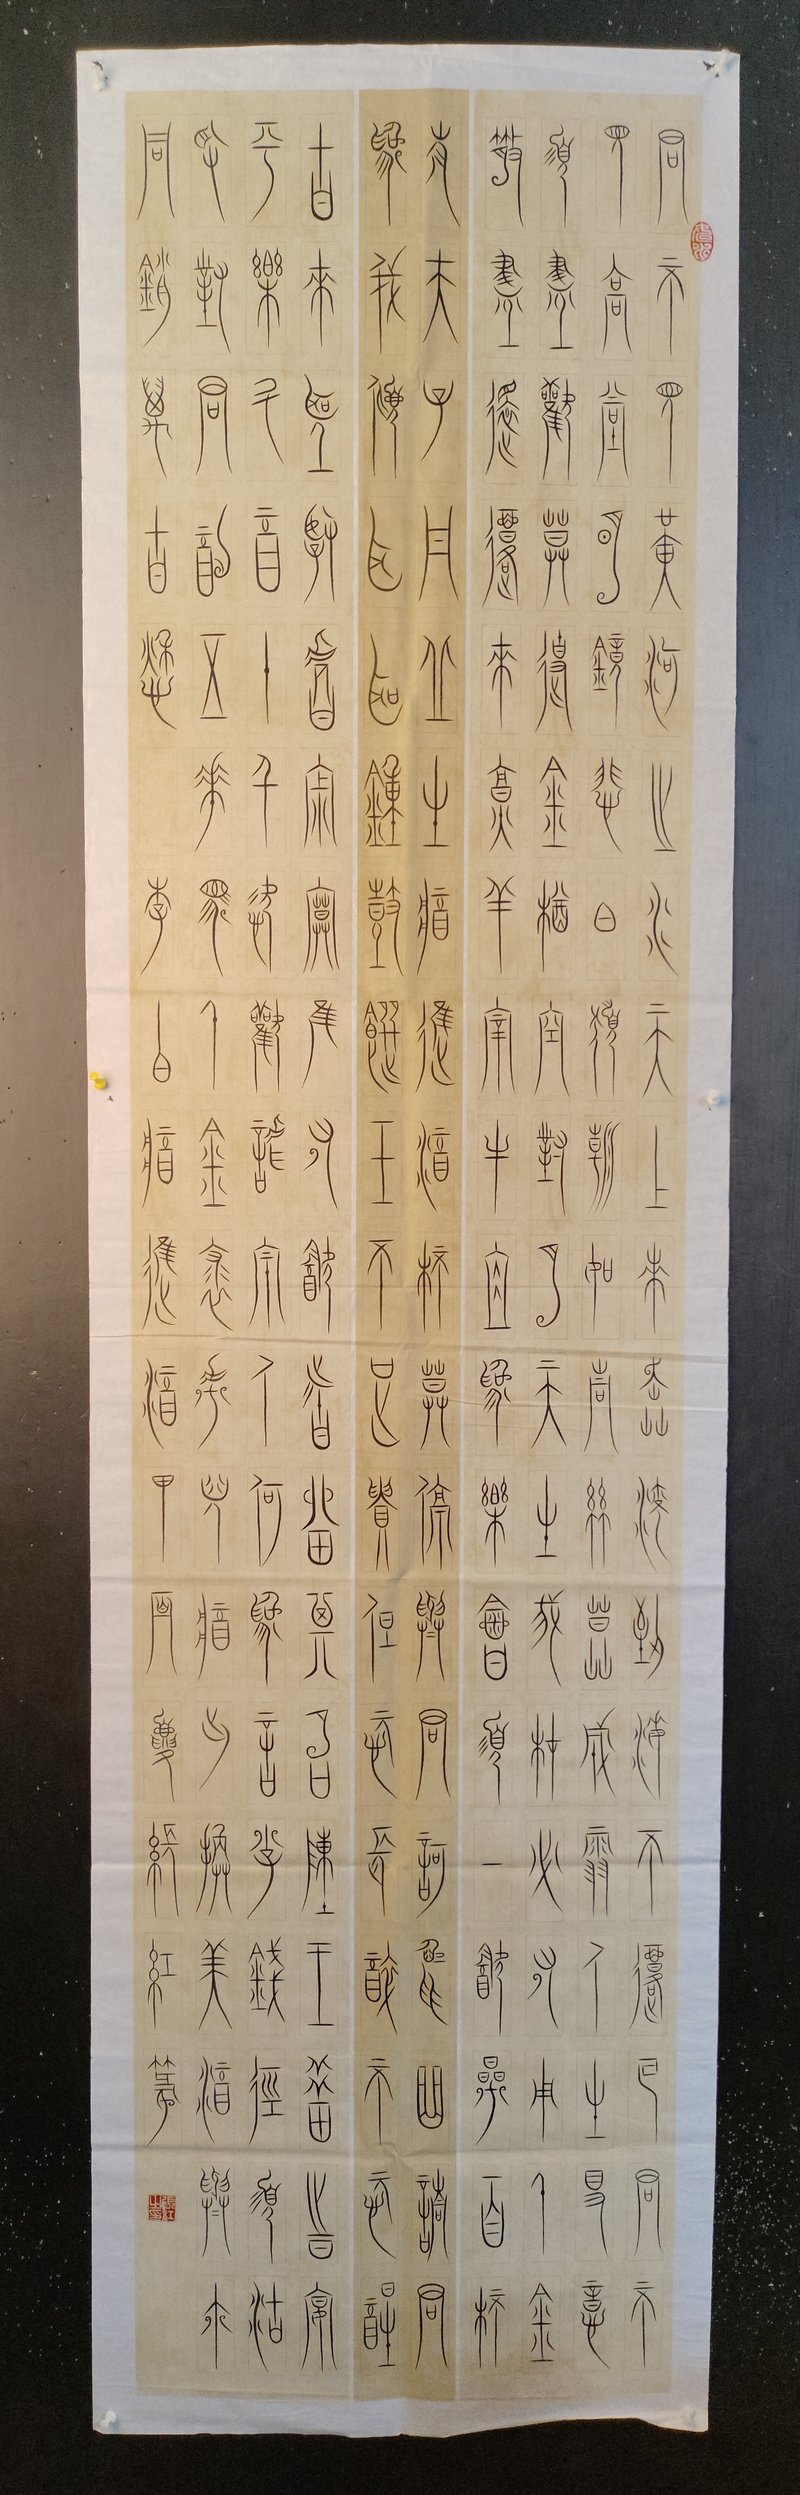 君不見黃河之水天上來奔流到海不復回君不
見高堂明鏡悲白髮朝如青絲暮成雪人生得意
須盡歡莫使金樽空對月天生我材必有用千金
散盡還復來烹羊宰牛且為樂會須一飲三百杯
岑夫子丹丘生將進酒杯莫停與君歌一曲請君
為我傾耳聽鐘鼓饌玉不足貴但願長醉不願醒
古來聖賢皆寂寞惟有飲者留其名陳王昔時宴
平樂斗酒十千恣歡謔主人何為言少錢徑須沽
取對君酌五花馬千金裘呼兒將出換美酒與爾
同銷萬古愁 李白將進酒甲辰夏 紅篆